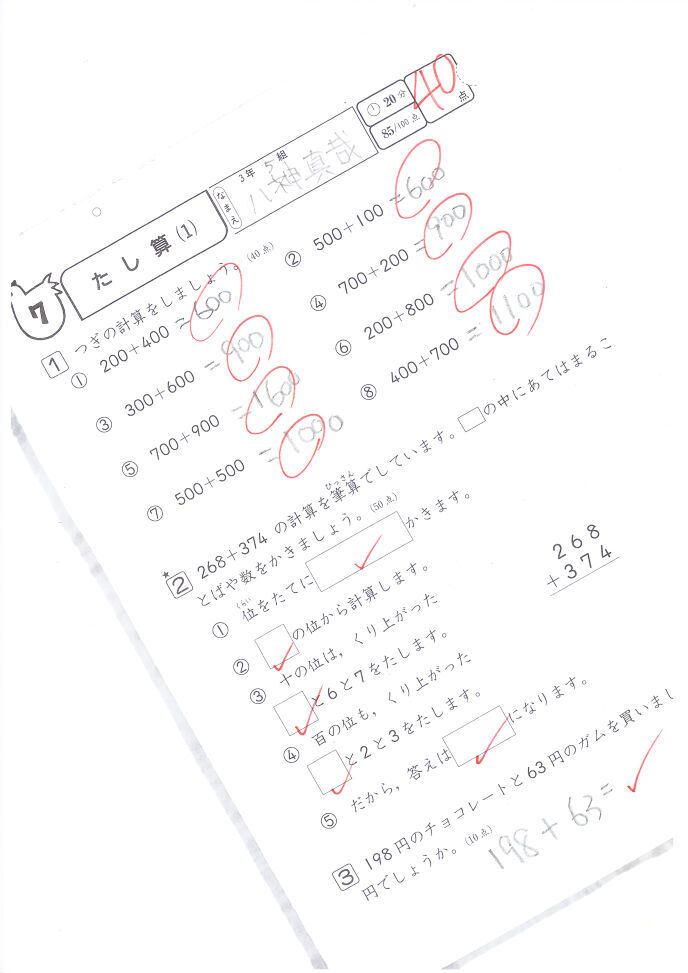 7
たし算(1)
3年 5組
なまえ
八神真哉
20分
85/100点
40点
1 つぎの計算をしましょう。(40点)
① 200+400 =600
② 500+100 =600
③ 300+600 =900
④ 700+200 =900
⑤ 700+900 =1600
⑥ 200+800 =1000
⑦ 500+500 =1000
⑧ 400+700 =1100
★2 268+374の計算を筆算でしています。□の中にあてはまるこ
ひっさん
とばや数をかきましょう。(50点)
① 位をたてに□かきます。
くらい
② □の位から計算します。
③ 十の位は,くり上がった
□と6と7をたします。
④ 百の位も,くり上がった
□と2と3をたします。
⑤ だから,答えは□になります。
268
+374
3 198円のチョコレートと63円のガムを買いまし
円でしょうか。(10点)
198+63=